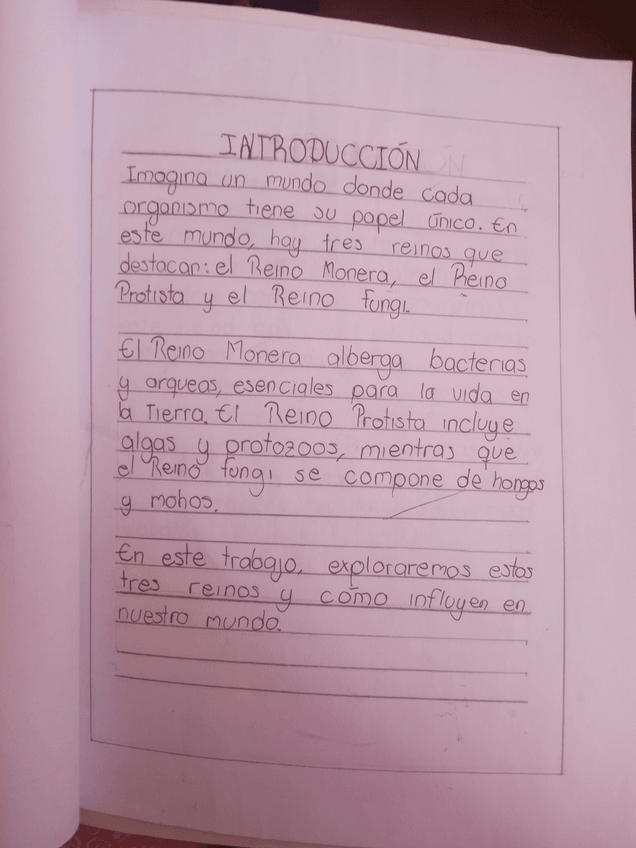 INTRODUCCIÓN
Imagina un mundo donde cada
organismo tiene su papel único. En
este mundo, hay tres reinos que
destacan: el Reino Monera, el Reino
Protista y el Reino Fungi.
El Reino Monera alberga bacterias
y arqueas, esenciales para la vida en
la Tierra. El Reino Protista incluye
algas y protozoos, mientras que
el Reino fungi se compone de hongos
y mohos.
En este trabajo, exploraremos estos
tres reinos y cómo influyen en
nuestro mundo.